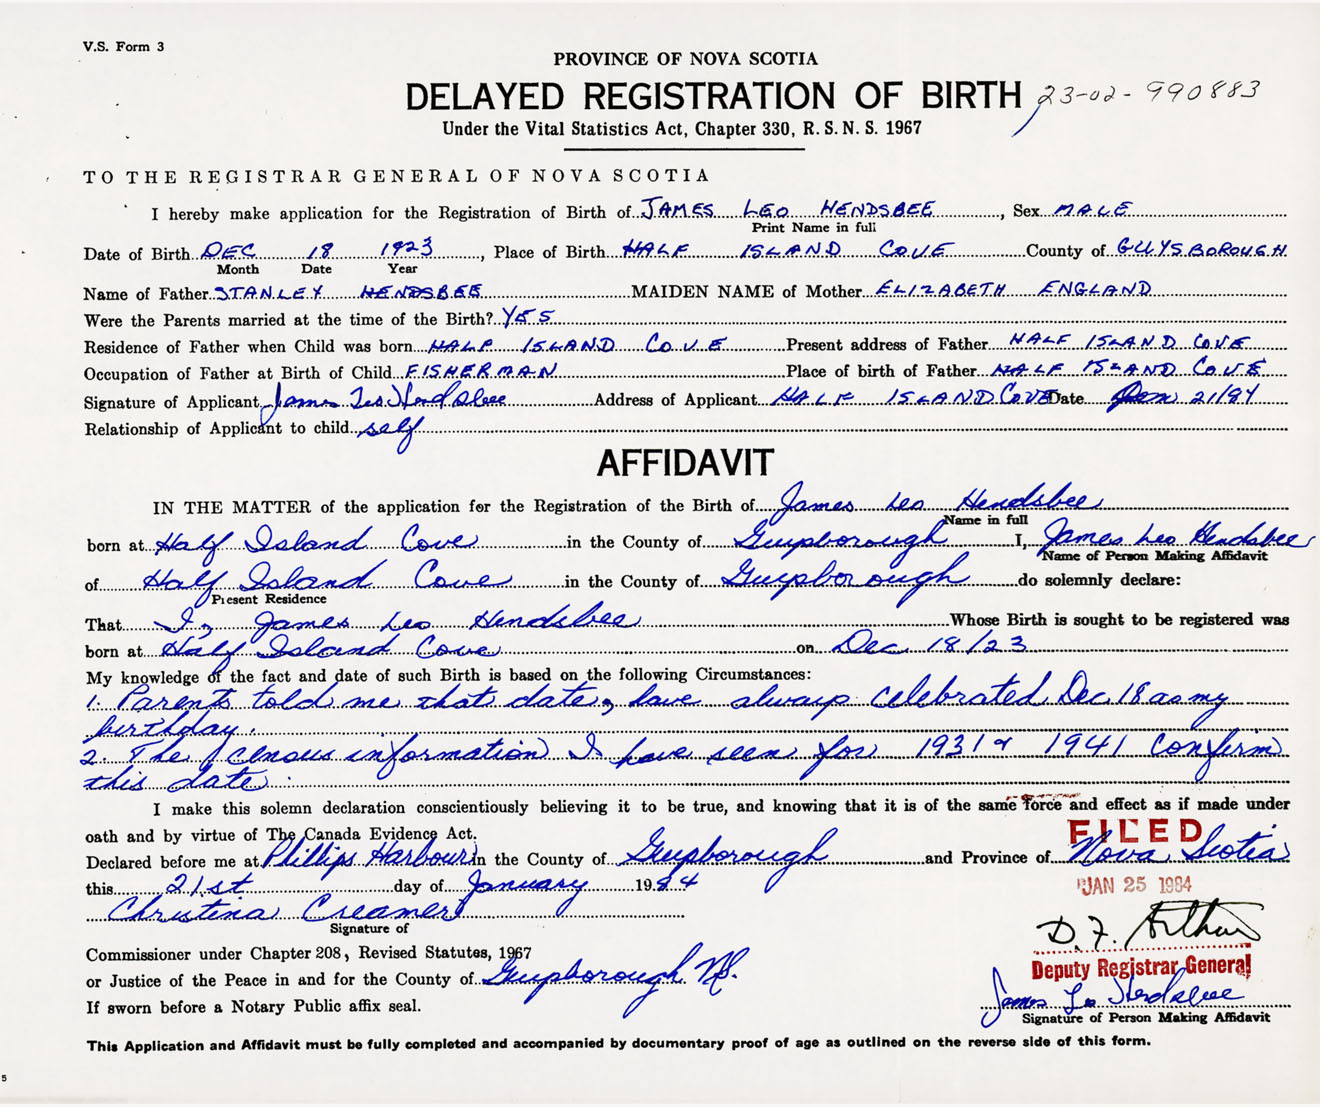 V.S. Form 3
PROVINCE OF NOVA SCOTIA
DELAYED REGISTRATION OF BIRTH 23-02-990883
Under the Vital Statistics Act, Chapter 330, R. S. N. S. 1967
TO THE REGISTRAR GENERAL OF NOVA SCOTIA
I hereby make application for the Registration of Birth of JAMES LEO HENDSBEE, Sex MALE
Print Name in full
Date of Birth DEC 18 1923, Place of Birth HALF ISLAND COVE County of GUYSBOROUGH
Month Date Year
Name of Father STANLEY HENDSBEE MAIDEN NAME of Mother ELIZABETH ENGLAND
Were the Parents married at the time of the Birth? YES
Residence of Father when Child was born HALF ISLAND COVE Present address of Father HALF ISLAND COVE
Occupation of Father at Birth of Child FISHERMAN Place of birth of Father HALF ISLAND COVE
Signature of Applicant James Leo Hendsbee Address of Applicant HALF ISLAND COVE Date Jan 21/84
Relationship of Applicant to child self
AFFIDAVIT
IN THE MATTER of the application for the Registration of the Birth of James Leo Hendsbee
Name in full
born at Half Island Cove in the County of Guysborough I, James Leo Hendsbee
Name of Person Making Affidavit
of Half Island Cove in the County of Guysborough do solemnly declare:
Present Residence
That I, James Leo Hendsbee Whose Birth is sought to be registered was
born at Half Island Cove on Dec 18/23
My knowledge of the fact and date of such Birth is based on the following Circumstances:
1. Parents told me that date, have always celebrated Dec 18 as my
birthday.
2. The census information I have seen for 1931 & 1941 confirm
this date.
I make this solemn declaration conscientiously believing it to be true, and knowing that it is of the same force and effect as if made under
oath and by virtue of The Canada Evidence Act.
FILED
Declared before me at Phillips Harbour in the County of Guysborough and Province of Nova Scotia
this 21st day of January 1984
JAN 25 1984
Christina Creamer
Signature of
D. F. Arthur
Commissioner under Chapter 208, Revised Statutes, 1967
Deputy Registrar General
or Justice of the Peace in and for the County of Guysborough NS.
James Leo Hendsbee
If sworn before a Notary Public affix seal.
Signature of Person Making Affidavit
This Application and Affidavit must be fully completed and accompanied by documentary proof of age as outlined on the reverse side of this form.
5